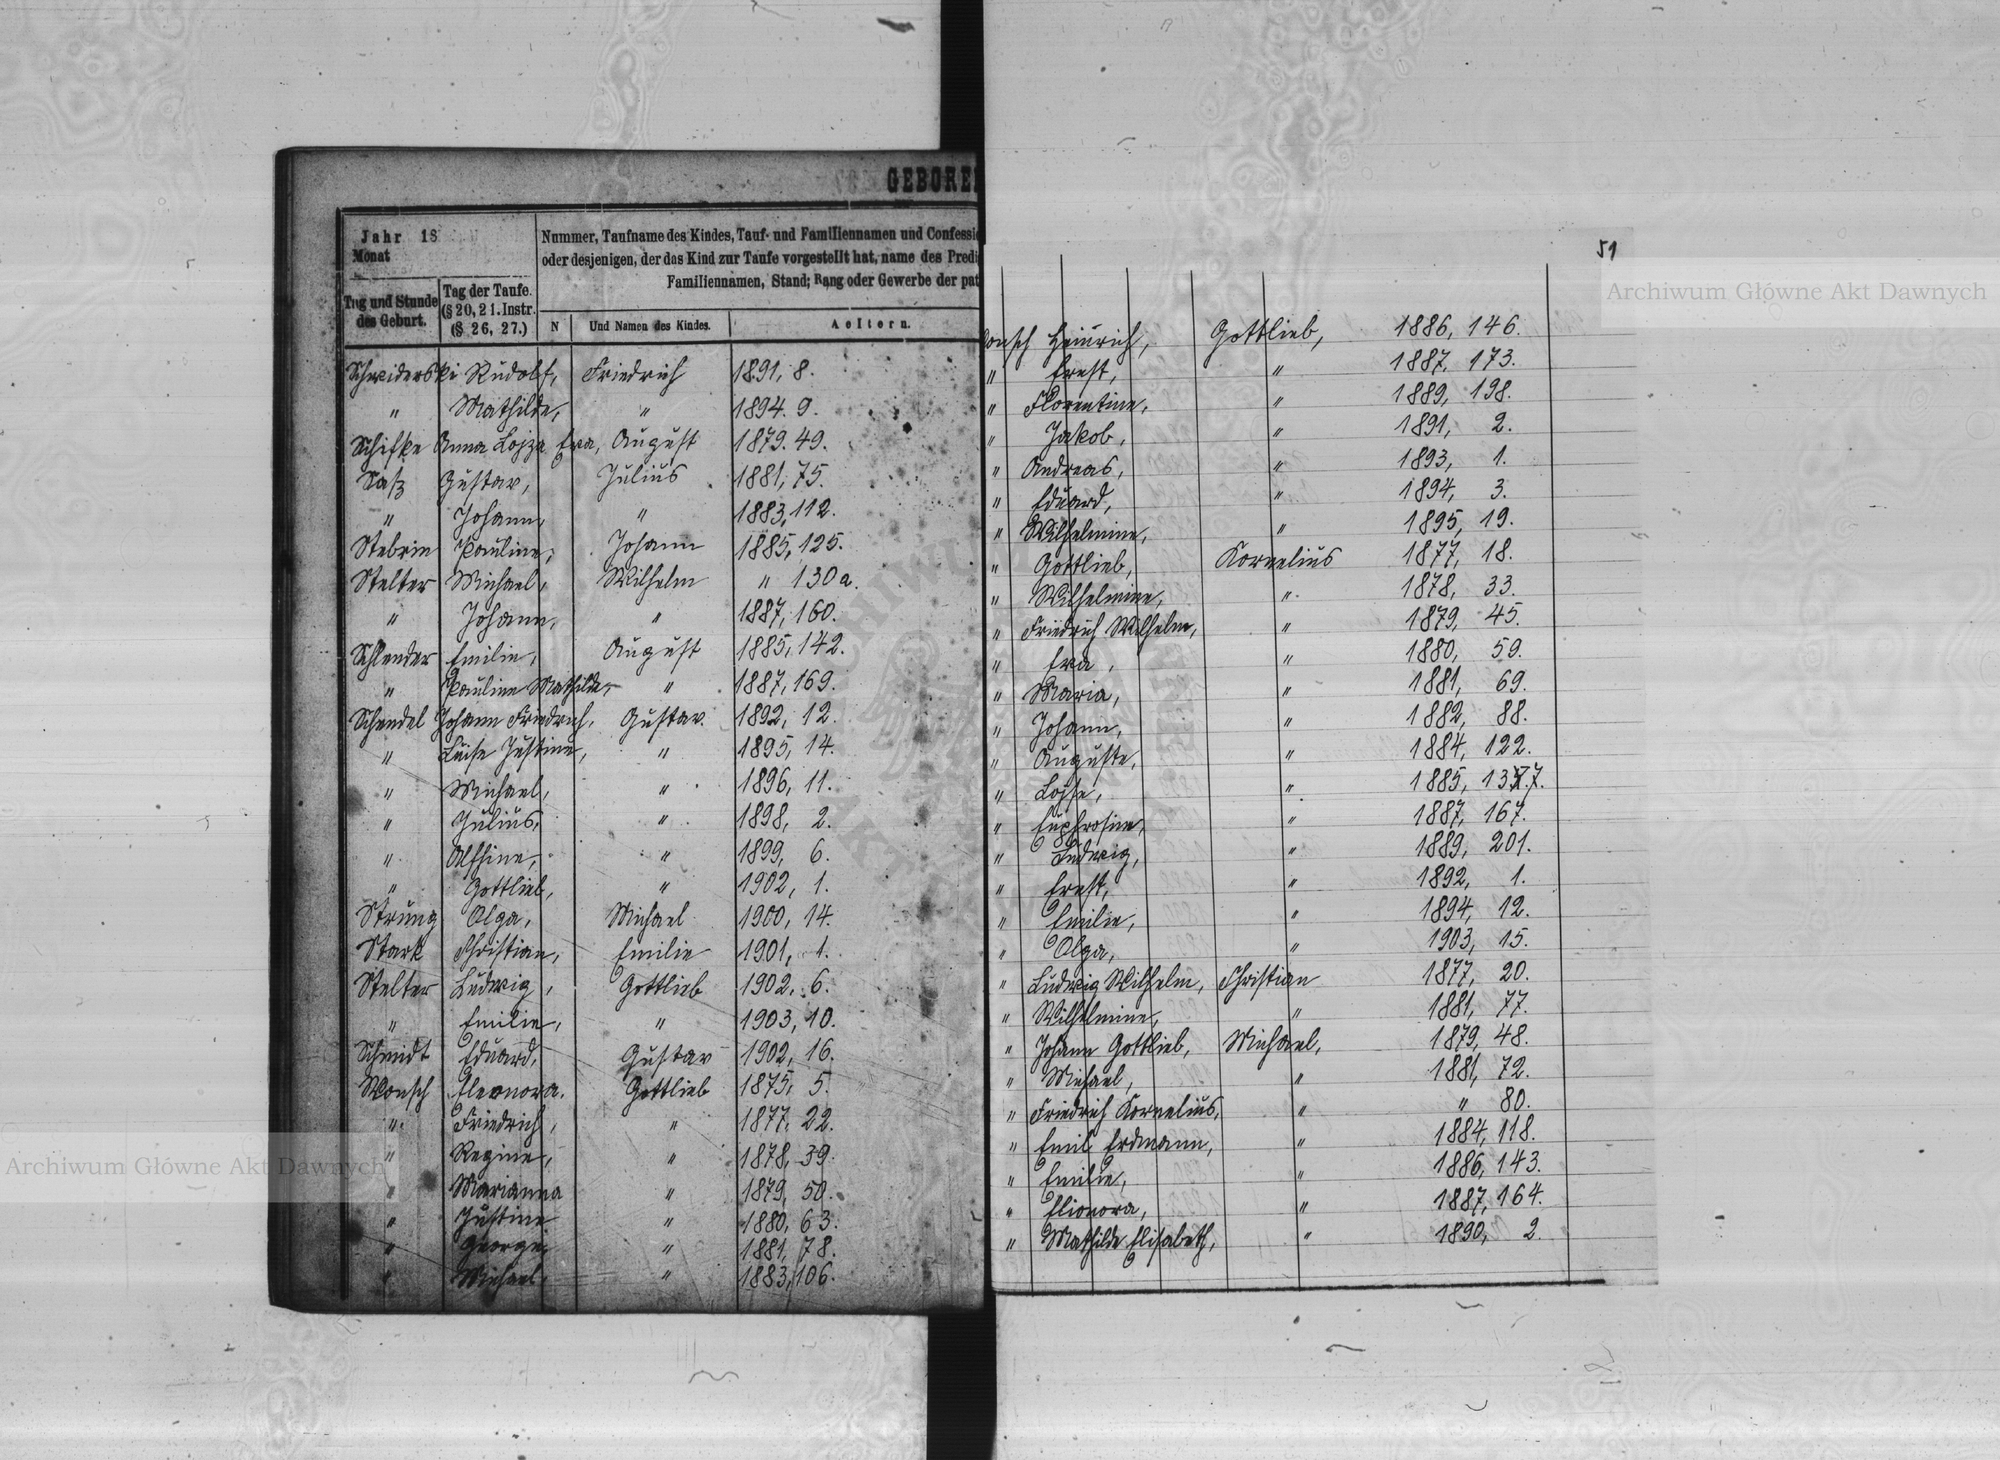 GEBOREN
Jahr 18
Monat
Tag und Stunde
des Geburt.
Tag der Taufe.
(§ 20, 21. Instr.
(§ 26, 27.)
Nummer, Taufname des Kindes, Tauf- und Familiennamen und Confessi
oder desjenigen, der das Kind zur Taufe vorgestellt hat, name des Predi
Familiennamen, Stand; Rang oder Gewerbe der pat
N
Und Namen des Kindes.
Aeltern.
Schwiderski Rudolf, Friedrich 1891, 8.
" Mathilde, " 1894. 9.
Schifke Anna Lojza Eva, August 1879. 49.
Saß Gustav, Julius 1881, 75.
" Johann, " 1883, 112.
Stebrin Pauline, Johann 1885, 125.
Stelter Michael, Wilhelm " 130a.
" Johann, " 1887, 160.
Schlender Emilie, August 1885, 142.
" Pauline Mathilde, " 1887, 169.
Schendel Johann Friedrich, Gustav. 1892, 12.
" Luise Justine, " 1895, 14.
" Michael, " 1896, 11.
" Julius, " 1898, 2.
" Alfine, " 1899, 6.
" Gottlieb, " 1902, 1.
Strung Olga, Michael 1900, 14.
Stark Christian, Emilie 1901, 1.
Stelter Ludwig, Gottlieb 1902, 6.
" Emilie, " 1903, 10.
Schmidt Eduard, Gustav 1902, 16.
Wonsch Eleonora. Gottlieb 1875, 5.
" Friedrich, " 1877, 22.
" Regine, " 1878, 39.
" Marianna " 1879, 50.
" Justine " 1880, 63.
" George, " 1881, 78.
" Michael, " 1883, 106.
51
onsch Heinrich, Gottlieb, 1886, 146.
" Ernst, " 1887, 173.
" Florentine, " 1889, 198.
" Jakob, " 1891, 2.
" Andreas, " 1893, 1.
" Eduard, " 1894, 3.
" Wilhelmine, " 1895, 19.
" Gottlieb, Kornelius 1877, 18.
" Wilhelmine, " 1878, 33.
" Friedrich Wilhelm, " 1879, 45.
" Eva, " 1880, 59.
" Maria, " 1881, 69.
" Johann, " 1882, 88.
" Auguste, " 1884, 122.
" Lojse, " 1885, 137.
" Euphrosine, " 1887, 167.
" Ludwig, " 1889, 201.
" Ernst, " 1892, 1.
" Emilie, " 1894, 12.
" Olga, " 1903, 15.
" Ludwig Wilhelm, Christian 1877, 20.
" Wilhelmine, " 1881, 77.
" Johann Gottlieb, Michael, 1879, 48.
" Michael, " 1881, 72.
" Friedrich Kornelius, " " 80.
" Emil Erdmann, " 1884, 118.
" Emilie, " 1886, 143.
" Elionora, " 1887, 164.
" Mathilde Elisabeth, " 1890, 2.
Archiwum Główne Akt Dawnych
Archiwum Główne Akt Dawnych